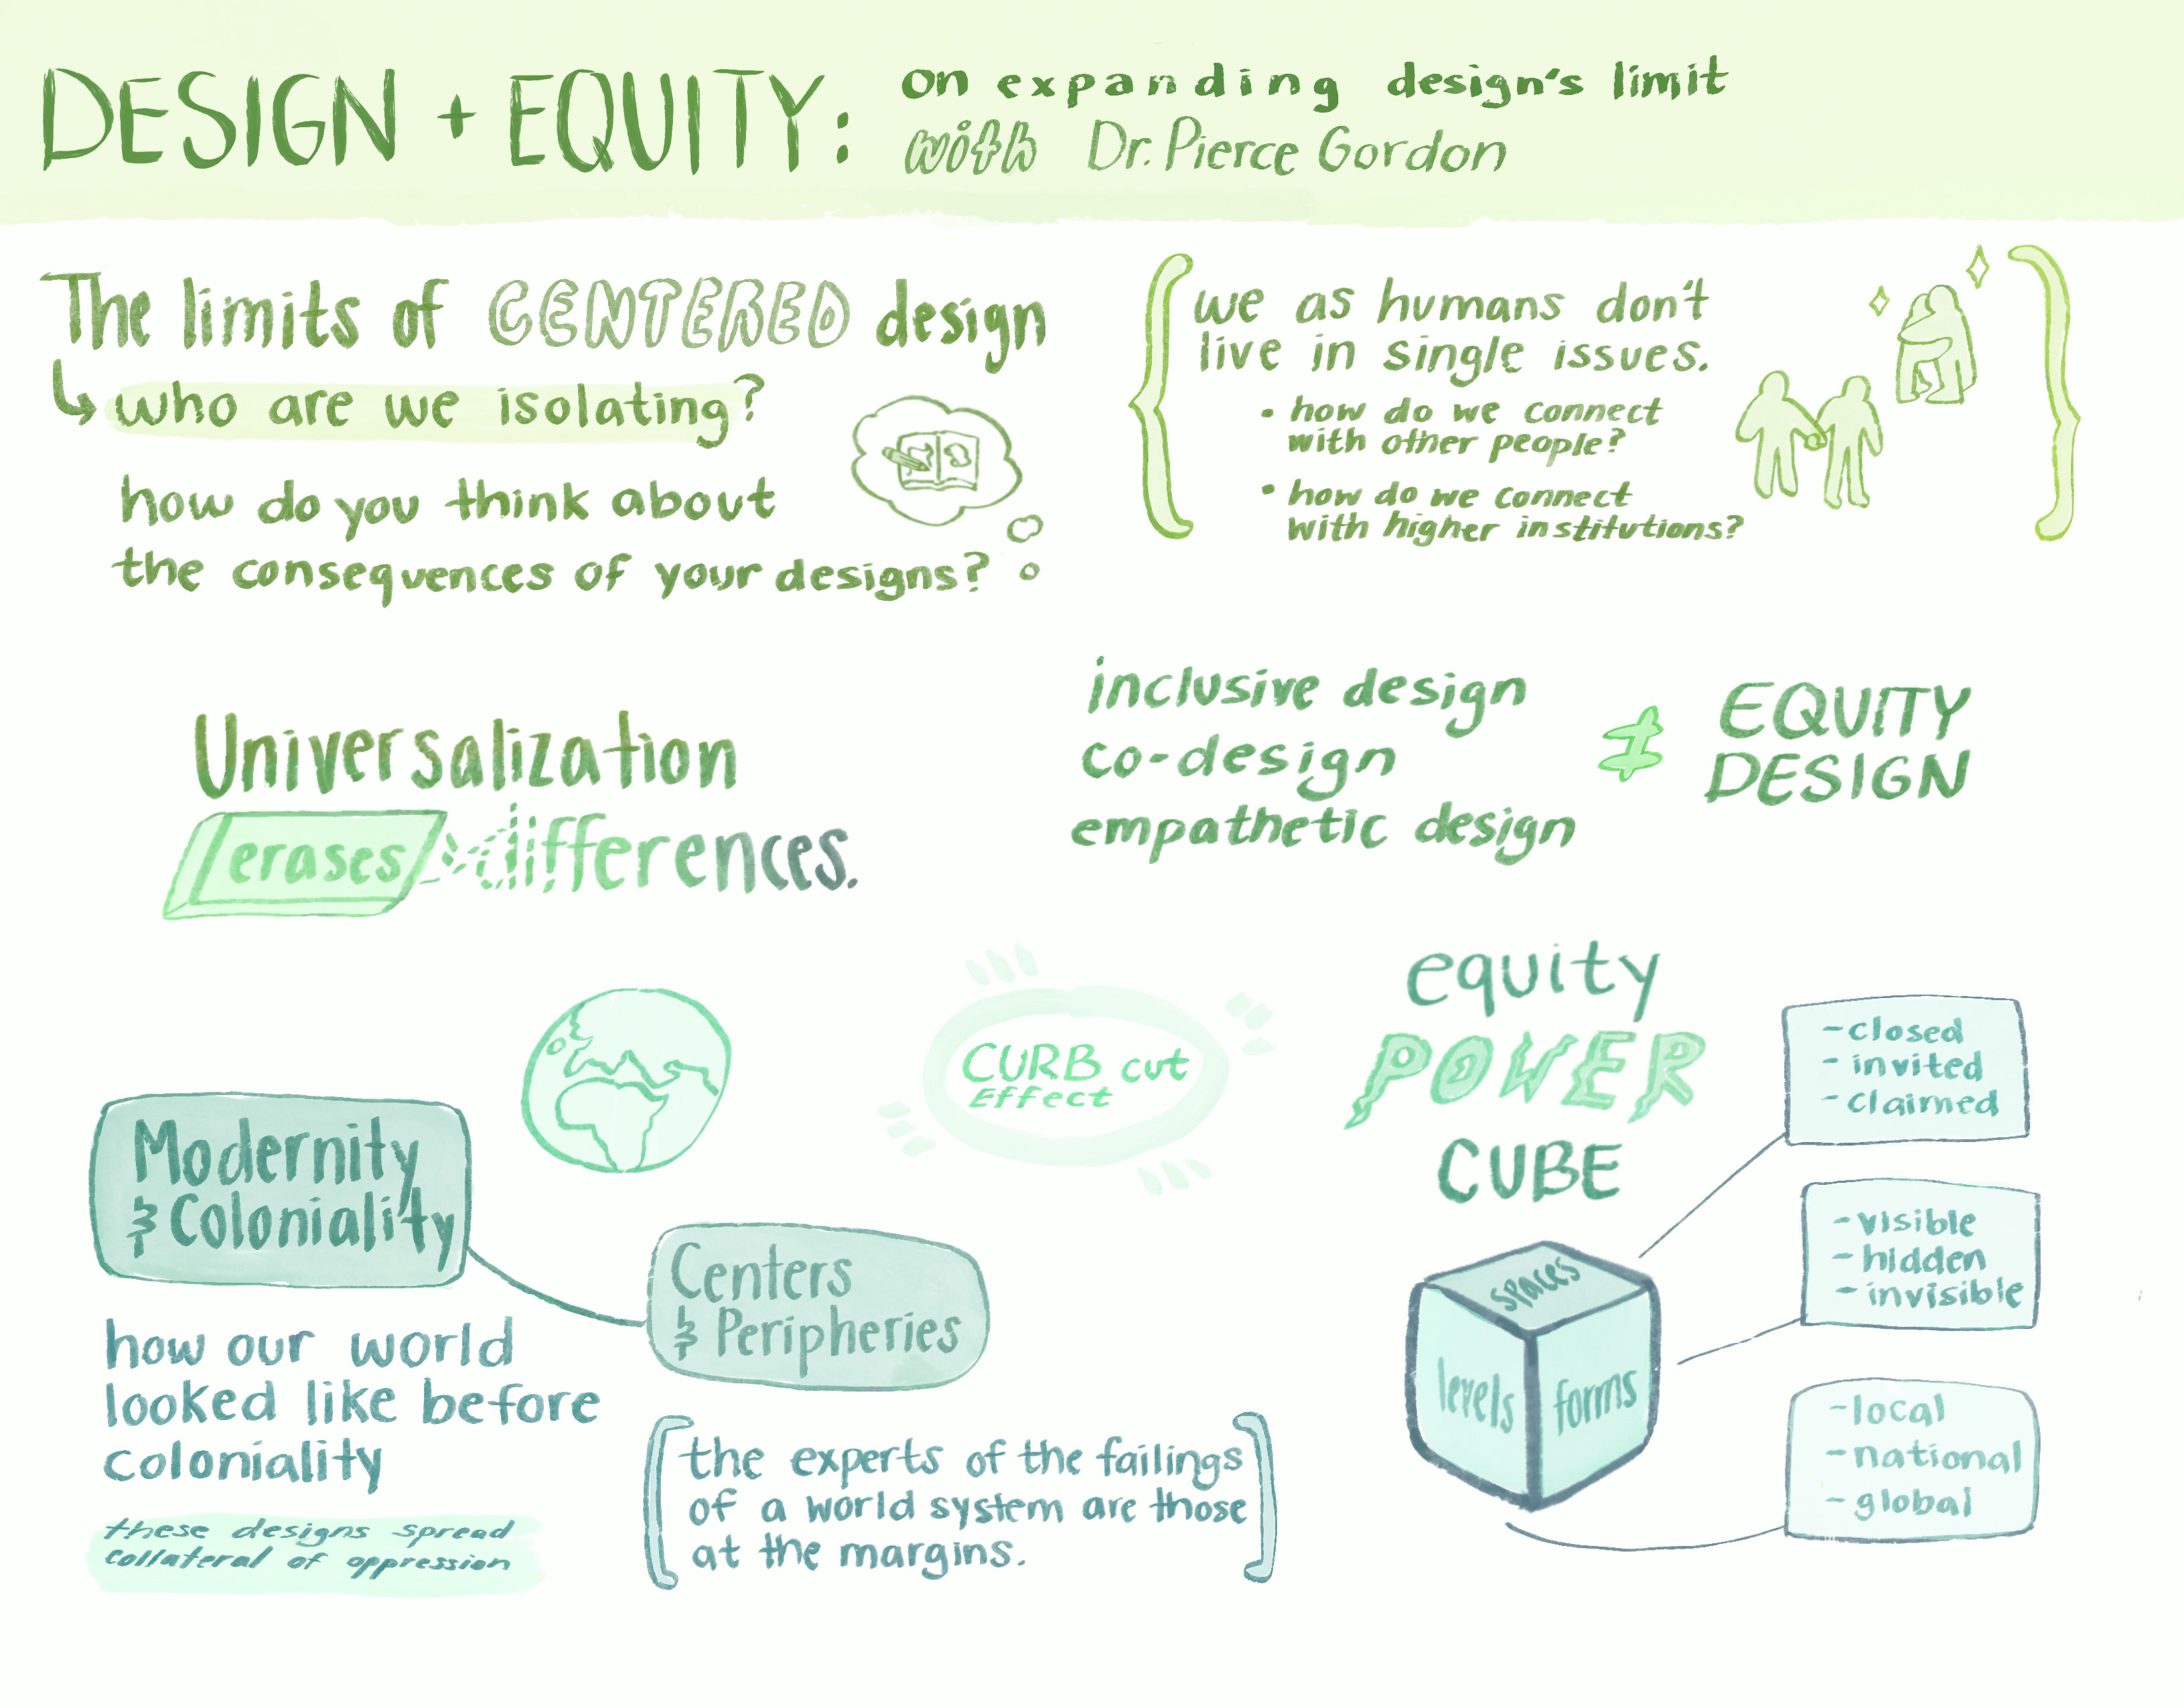 DESIGN + EQUITY: on expanding design's limit
with Dr. Pierce Gordon
The limits of CENTERED design
who are we isolating?
how do you think about
the consequences of your designs?
we as humans don't
live in single issues.
• how do we connect
with other people?
• how do we connect
with higher institutions?
Universalization
erases differences.
inclusive design
co-design
empathetic design
≠
EQUITY
DESIGN
Modernity
& Coloniality
Centers
& Peripheries
how our world
looked like before
coloniality
these designs spread
collateral of oppression
CURB cut
Effect
the experts of the failings
of a world system are those
at the margins.
equity
POWER
CUBE
spaces
levels
forms
- closed
- invited
- claimed
- visible
- hidden
- invisible
- local
- national
- global